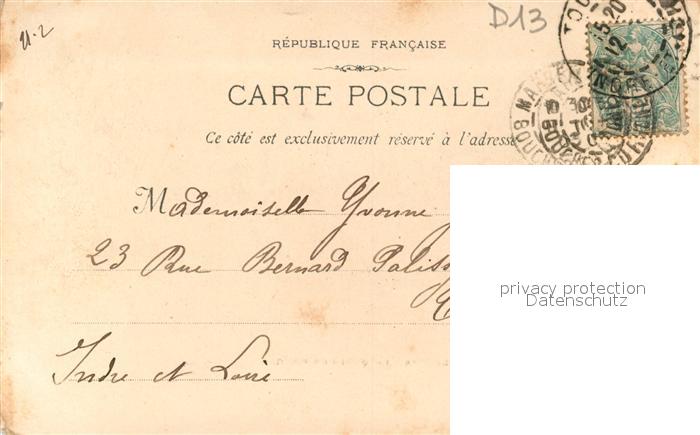 21-2
D13
RÉPUBLIQUE FRANÇAISE
CARTE POSTALE
Ce côté est exclusivement réservé à l'adresse
Mademoiselle Yvonne
23 Rue Bernard Paliss
Indre et Loire
privacy protection
Datenschutz